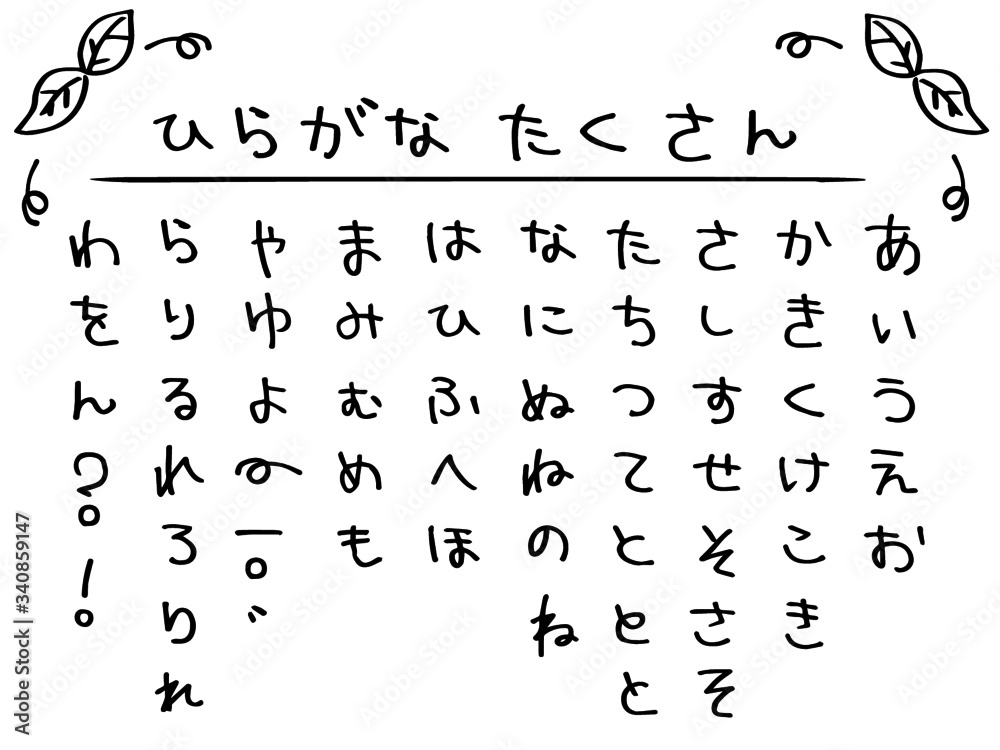 ひらがな たくさん
あいうえお
かきくけこき
さしすせそさそ
たちつてととと
なにぬねのね
はひふへほ
まみむめも
やゆよ〜ー。゛
らりるれろりれ
わをん?!
Adobe Stock | #340859147